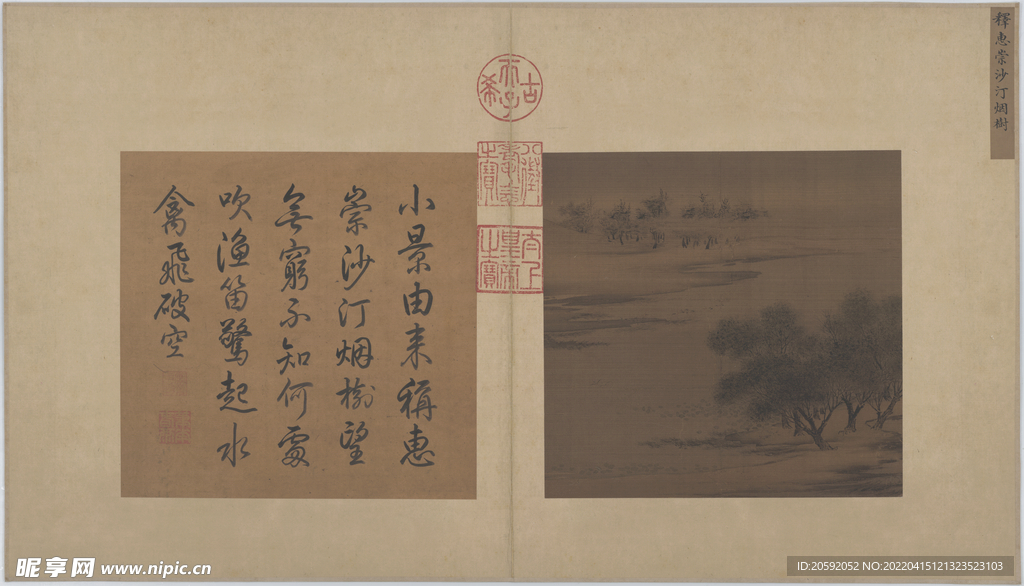 釋惠崇沙汀烟樹
小景由来稱惠
崇沙汀烟樹望
無窮不知何處
吹漁笛驚起水
禽飛破空
古希天子
八徵耄念之寶
太上皇帝之寶
昵享网 www.nipic.cn
ID:20592052 NO:20220415121323523103